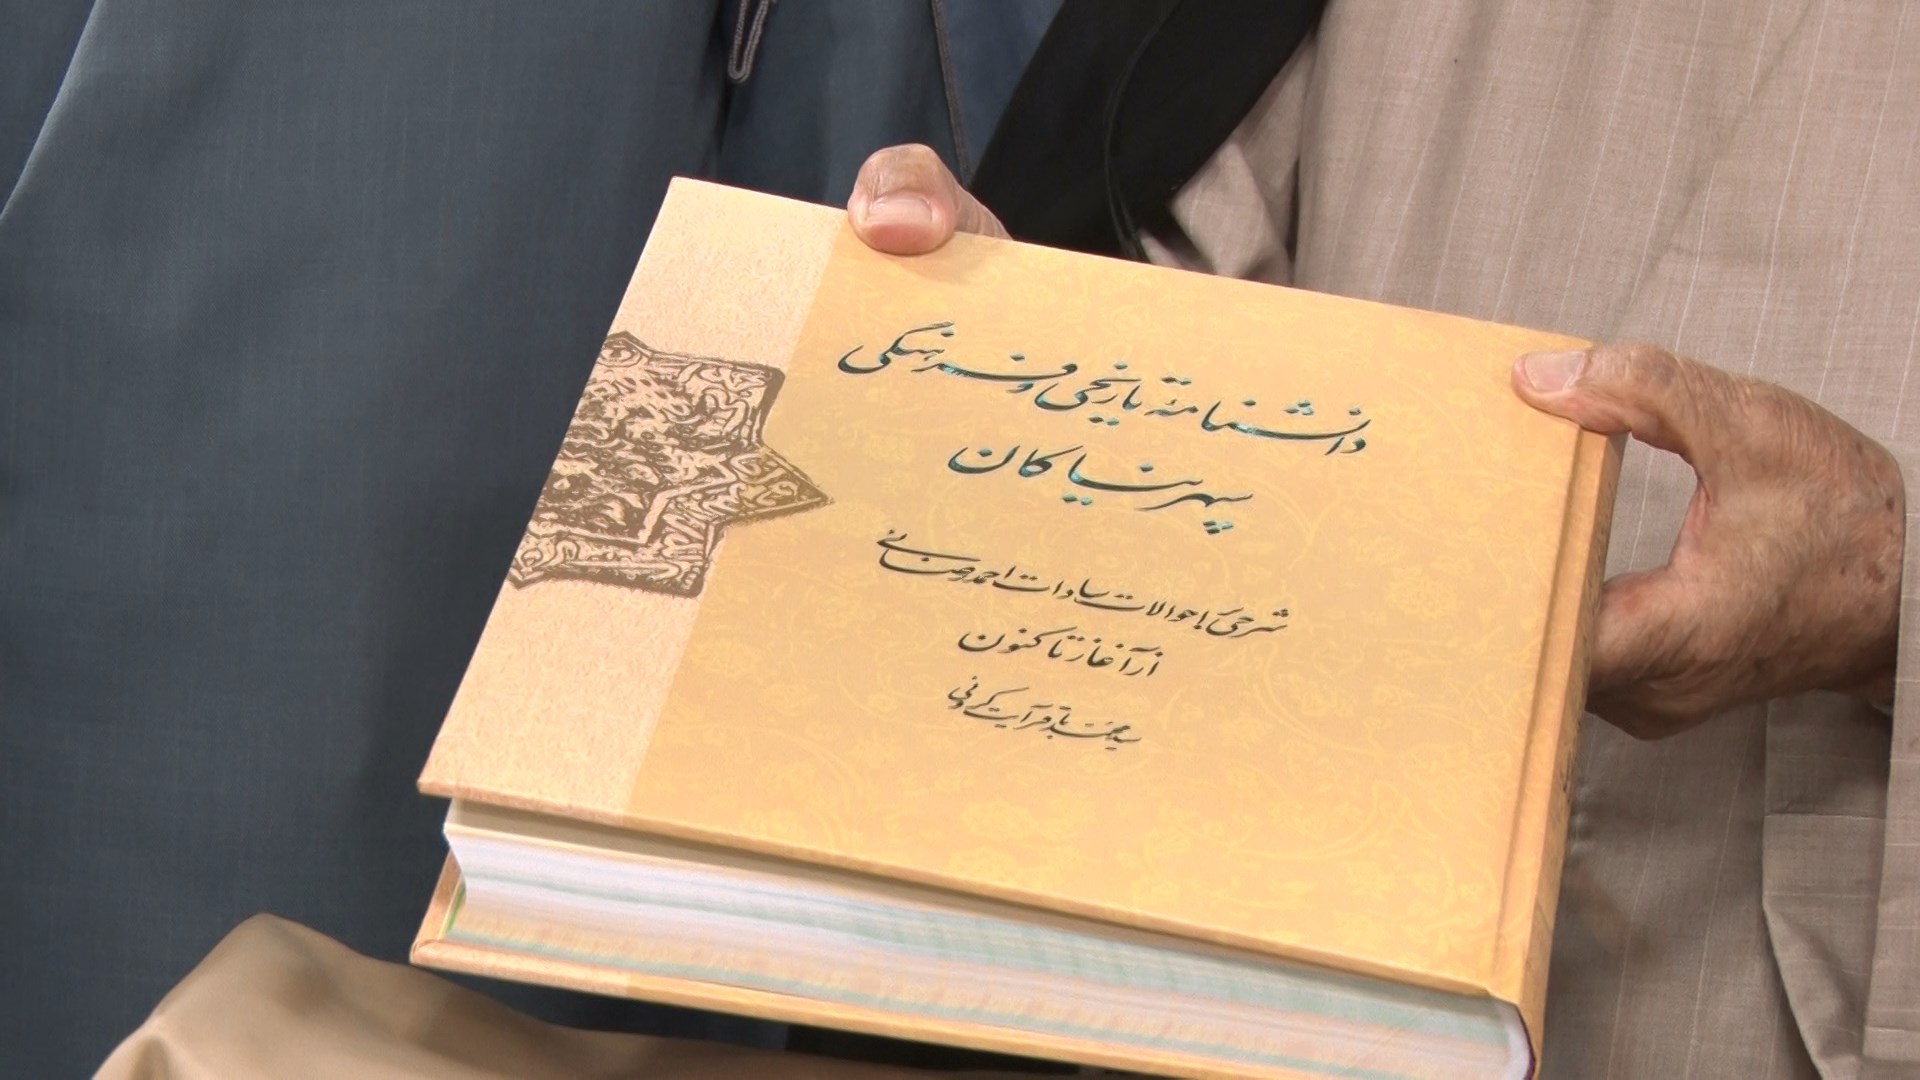 دانشنامهٔ تاریخی و فرهنگی
سپهر نیاکان
شرحی بر احوالات سادات احمد رضائی
از آغاز تا کنون
سید محمد باقر آیت کردونی